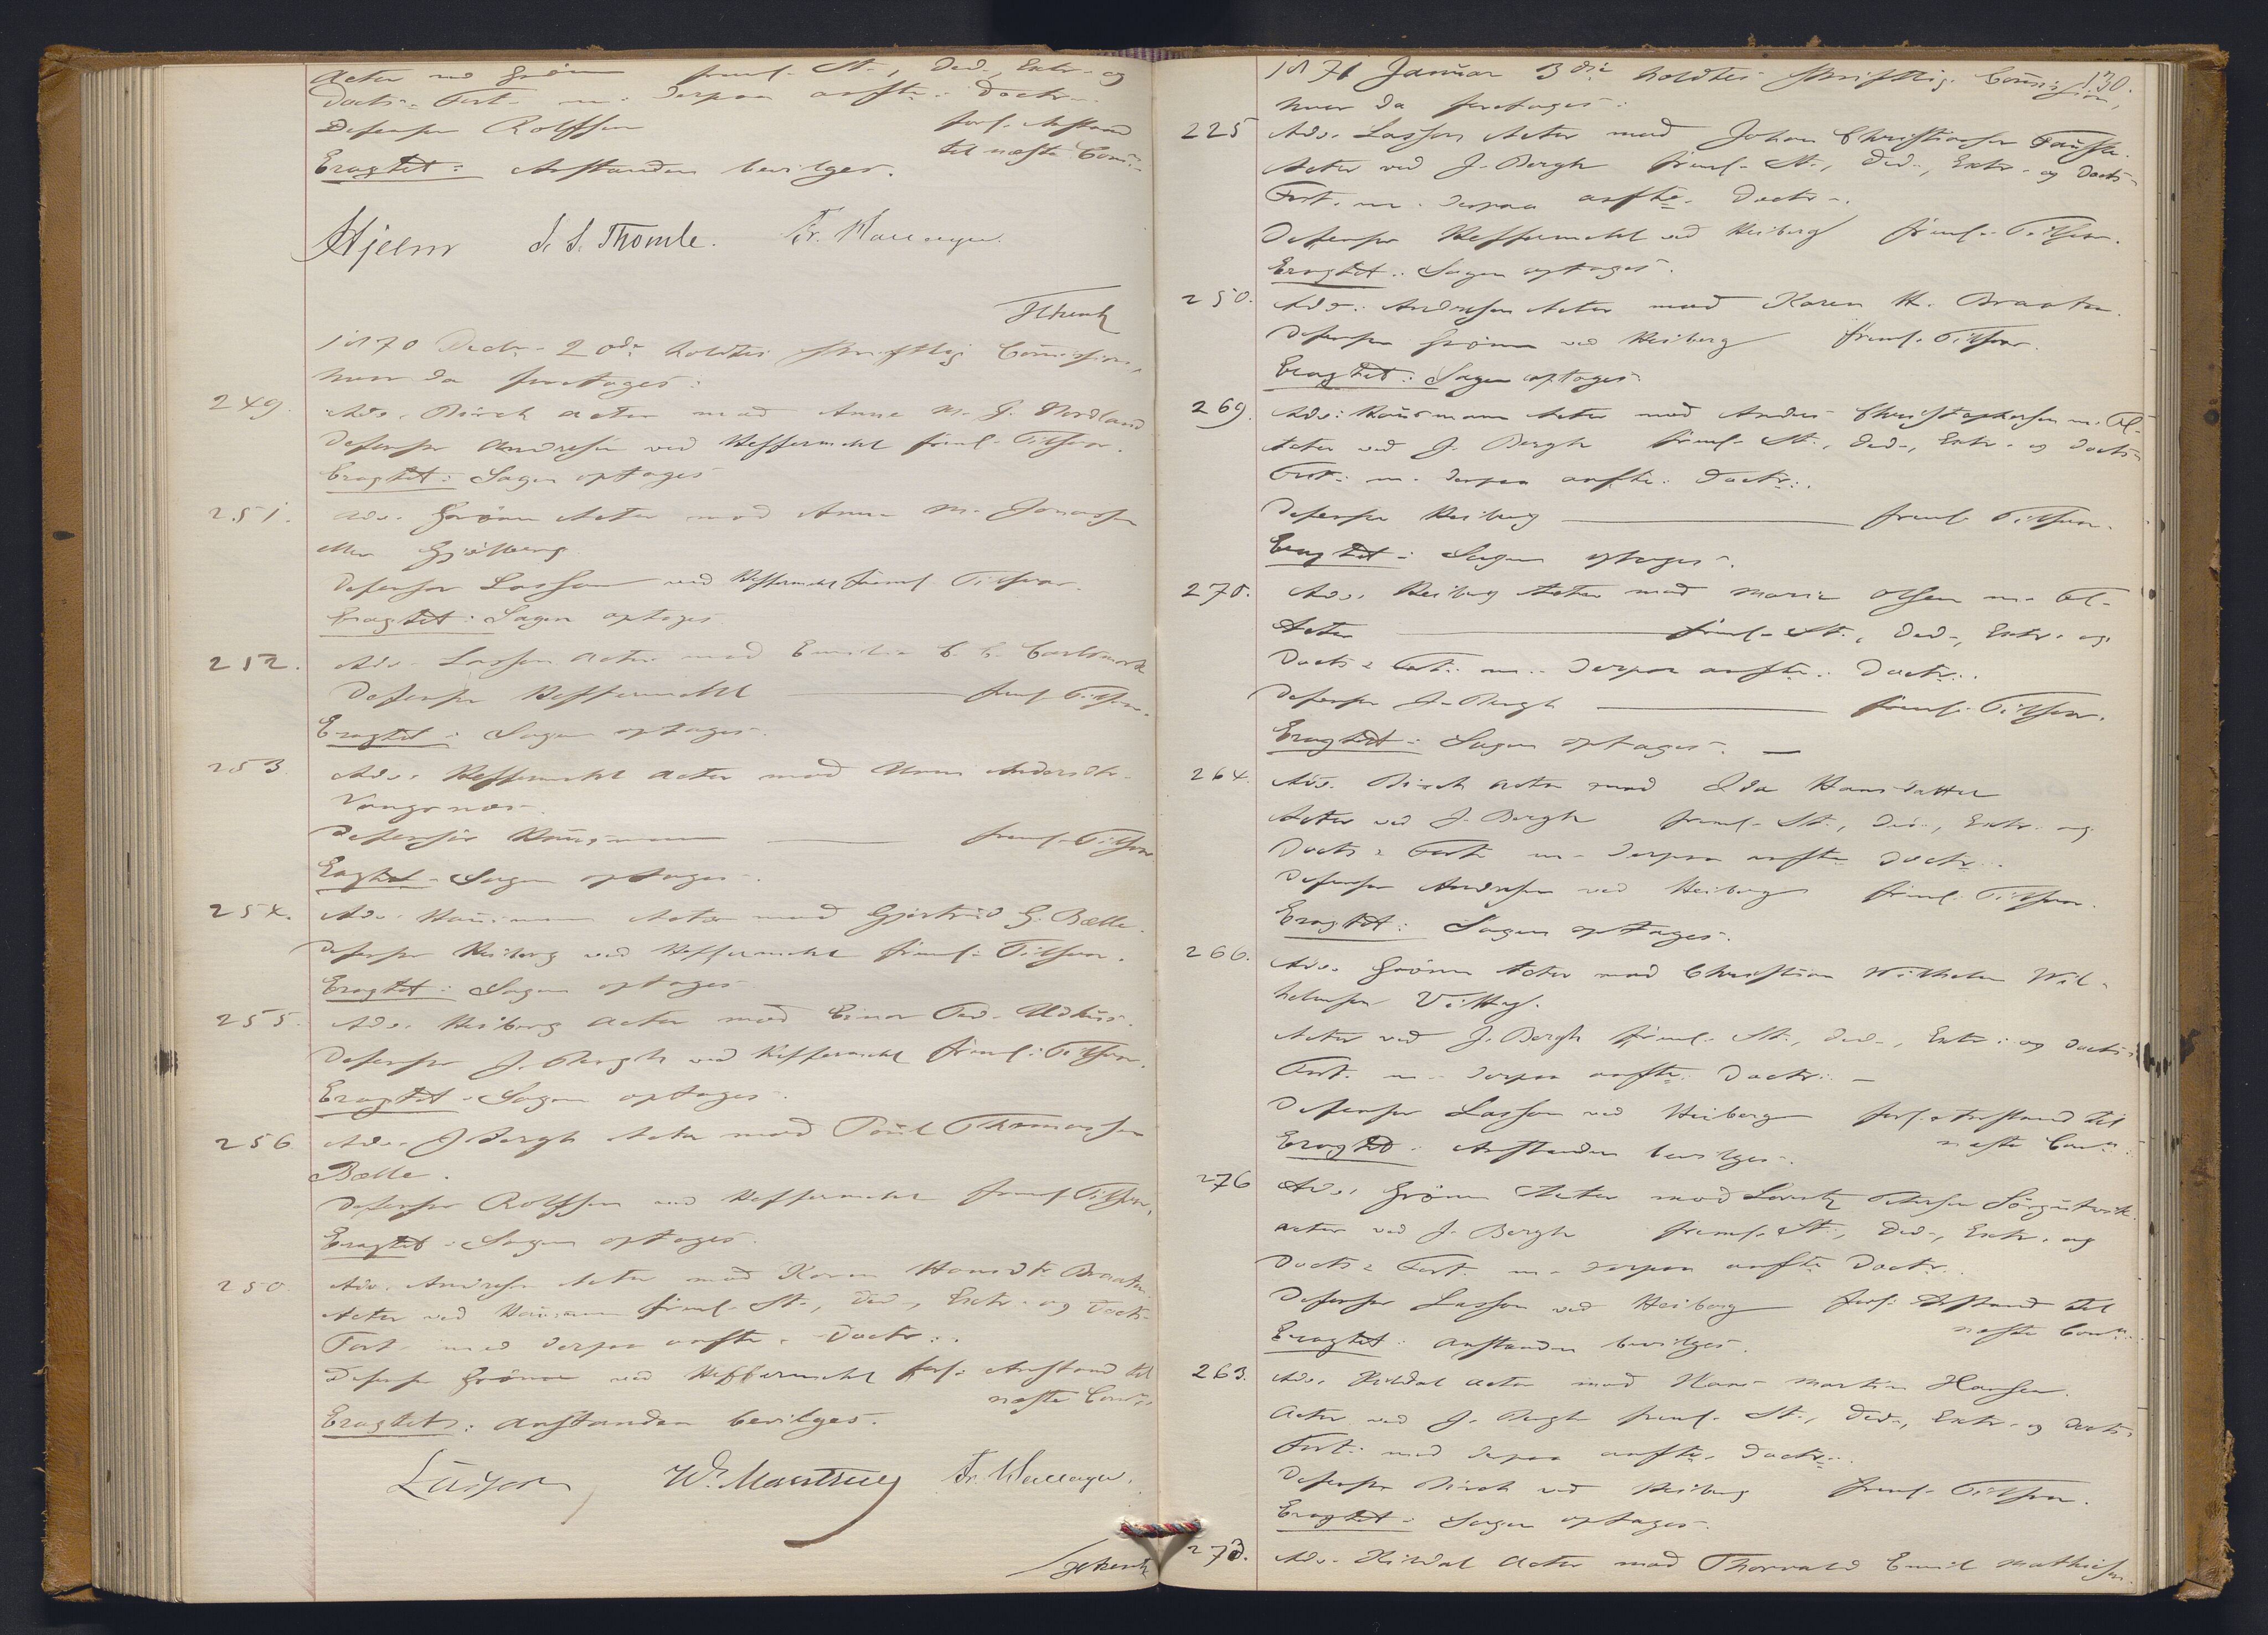 Actor ved Grønn freml. St., Ded-, Extr- og
Docts- Fort- m. derpaa anfte. Doctr-.
Defensor Rolfsen forl. Anstand
til næste Comn.
Eragtet: Anstanden bevilges.
Hjelm
1870 Decbr. 20de holdtes skriftlig Commission,
hvor da foretoges:
249. Adv. Birch Actor mod Anne M. J. Nordland
Defensor Andresen ved Heffermehl freml. Tilsvar.
Eragtet: Sagen optages
251. Adv. Grønn Actor mod Anne M. Jonassen
eller
Defensor Lasson ved Heffermehl freml Tilsvar.
Eragtet: Sagen optages
252. Adv. Lasson Actor mod Emilie C. C.
Defensor Heffermehl freml Tilsvar.
Eragtet: Sagen optages.
253. Adv. Heffermehl Actor mod Andersdtr.
Vangsnæs.
Defensor freml. Tilsvar
Eragtet. Sagen optages.
254. Adv. Actor mod Gjertrud G. Bælle.
Defensor Heiberg ved Heffermehl freml. Tilsvar.
Eragtet: Sagen optages
255. Adv. Heiberg Actor mod Einar
Defensor J. Bergh ved Heffermehl freml. Tilsvar.
Eragtet. Sagen optages.
256 Adv. J Bergh Actor mod Poul Thomassen
Bælle.
Defensor Rolfsen ved Heffermehl freml Tilsvar.
Eragtet: Sagen optages.
250. Adv. Andresen Actor mod Karen Hansdtr Braaten.
Actor ved freml. St., Ded-, Extr- og Docts-
Fort. med derpaa anfte. Doctr.
Defensor Grønn ved Heffermehl forl. Anstand til
næste Comn.
Eragtet: Anstanden bevilges.
Lasson
130.
1871 Januar 3die holdtes skriftlig Commission,
hvor da foretoges:
225 Adv. Lasson Actor mod Johan Christiansen
Actor ved J. Bergh freml. St., Ded-, Extr- og Docts-
Fort. m. derpaa anfte. Doctr.
Defensor Heffermehl ved Heiberg freml. Tilsvar.
Eragtet: Sagen optages.
250. Adv. Andresen Actor mod Karen H. Braaten.
Defensor Grønn ved Heiberg freml. Tilsvar.
Eragtet: Sagen optages.
269. Adv. Actor mod Anders Christophersen m. Fl.
Actor ved J. Bergh freml. St., Ded-, Extr- og Docts-
Fort. m. derpaa anfte. Doctr.
Defensor Heiberg freml Tilsvar.
Eragtet: Sagen optages.
Adv. Heiberg Actor mod Marie Olsen m. Fl.
Actor freml. St., Ded-, Extr. og
Docts- Fort. m. derpaa anfte. Doctr.
Defensor J. Bergh freml. Tilsvar.
Eragtet: Sagen optages.
264. Adv. Birch Actor mod Ida Hansdatter
Actor ved J. Bergh freml. St., Ded-, Extr. og
Docts- Fort. m. derpaa anfte Doctr.
Defensor Andresen ved Heiberg freml. Tilsvar.
Eragtet: Sagen optages.
266. Adv. Grønn Actor mod Christian Wilhelm Wil-
helmsen
Actor ved J. Bergh freml. St., Ded-, Extr. og Docts-
Fort. m. derpaa anfte. Doctr.
Defensor Lasson ved Heiberg forl. Anstand til
næste Comn.
Eragtet. Anstanden bevilges.
276 Adv. Grønn Actor mod Lorentz Petersen
Actor ved J. Bergh freml. St., Ded-, Extr. og
Docts- Fort. m. derpaa anfte. Doctr.
Defensor Lasson ved Heiberg forl. Anstand til
næste Comn.
Eragtet: Anstanden bevilges.
263. Adv. Hildal Actor mod Hans Martin Hansen.
Actor ved J. Bergh freml. St., Ded-, Extr. og Docts-
Fort. med derpaa anfte. Doctr.
Defensor Birch ved Heiberg freml. Tilsvar.
Eragtet: Sagen optages.
273. Adv. Hildal Actor mod Thorvald Emil Mathiesen.